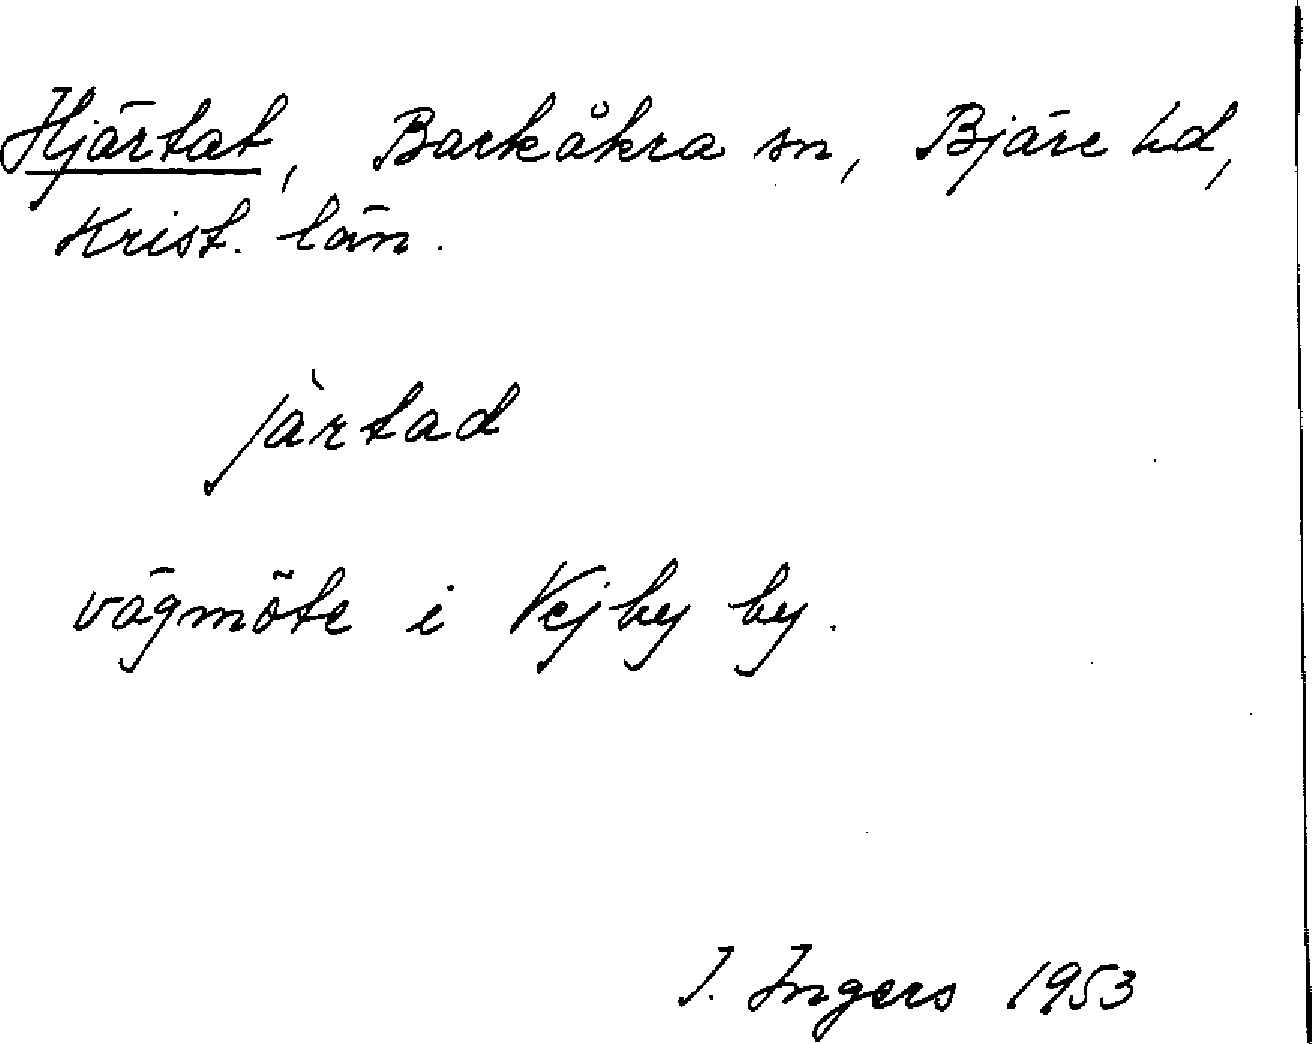 Hjärtat, Barkåkra sn, Bjäre hd,
Krist. län.
jàrtad
vägmöte i Vejby by.
I. Ingers 1953